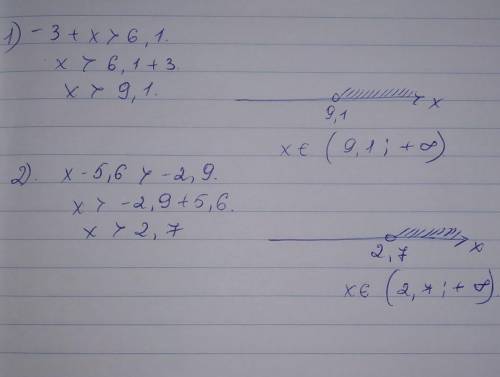 1) -3 + x > 6,1.
x > 6,1 + 3.
x > 9,1.
9,1 x
x ∈ (9,1; +∞)
2). x - 5,6 > -2,9.
x > -2,9 + 5,6.
x > 2,7
2,7 x
x ∈ (2,7; +∞)